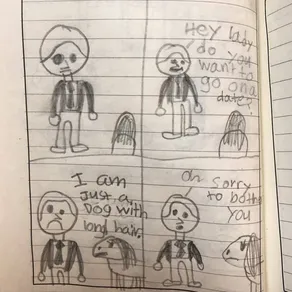 Hey lady
do you
want to
go on a
date?
I am
Just a
Dog with
long hair
oh sorry
to bother
you